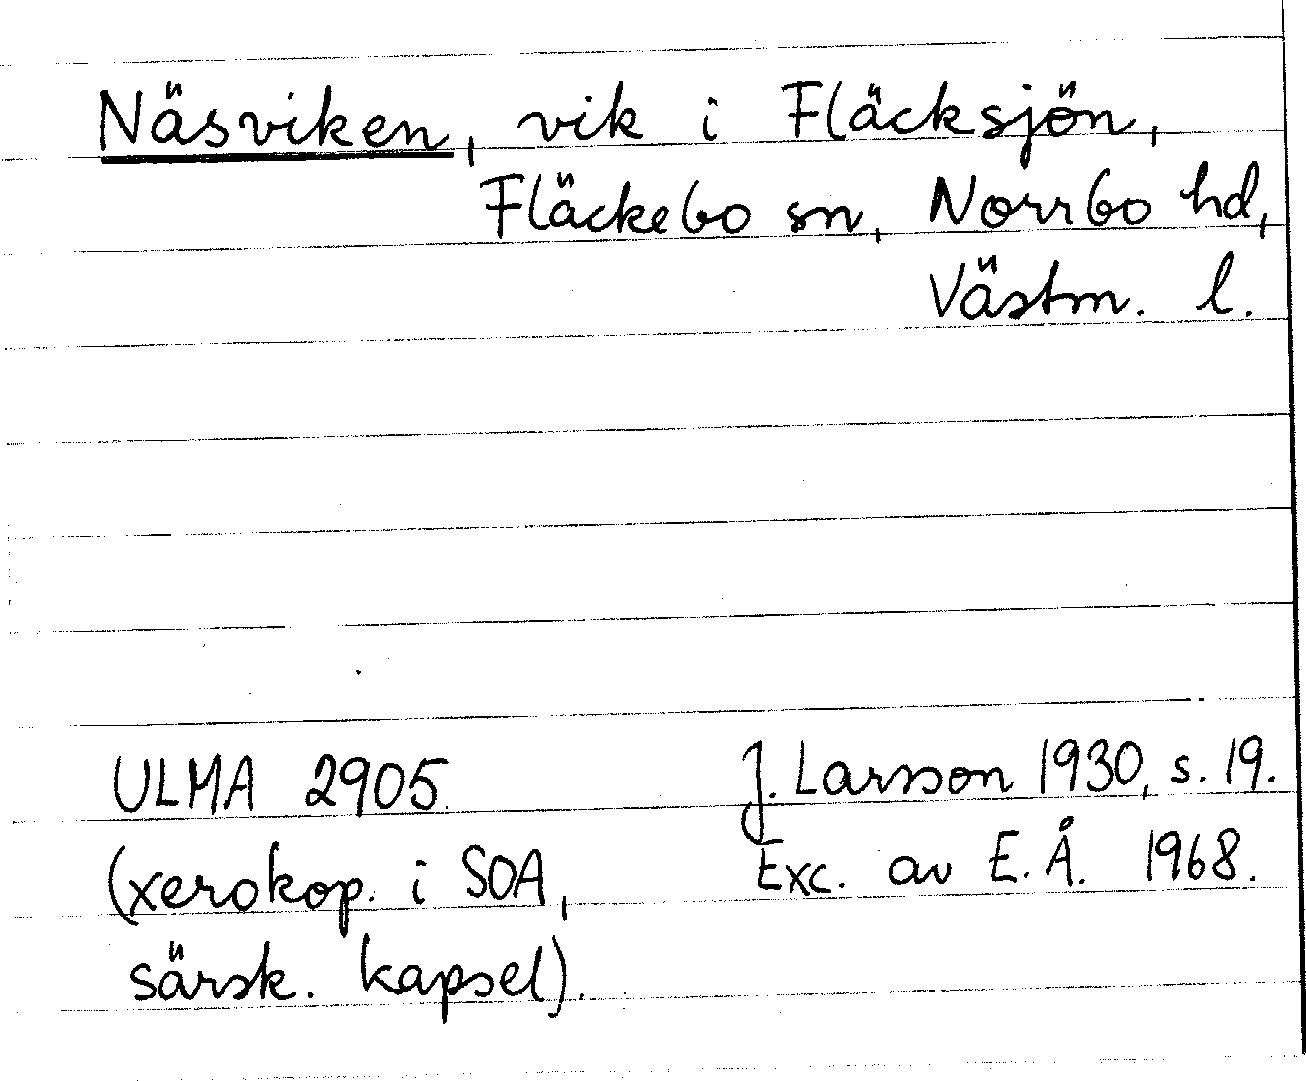 Näsviken, vik i Fläcksjön,
Fläckebo sn, Norrbo hd,
Västm. l.
ULMA 2905 J. Larsson 1930, s. 19.
(xerokop. i SOA, Exc. av E. Å. 1968.
särsk. kapsel).